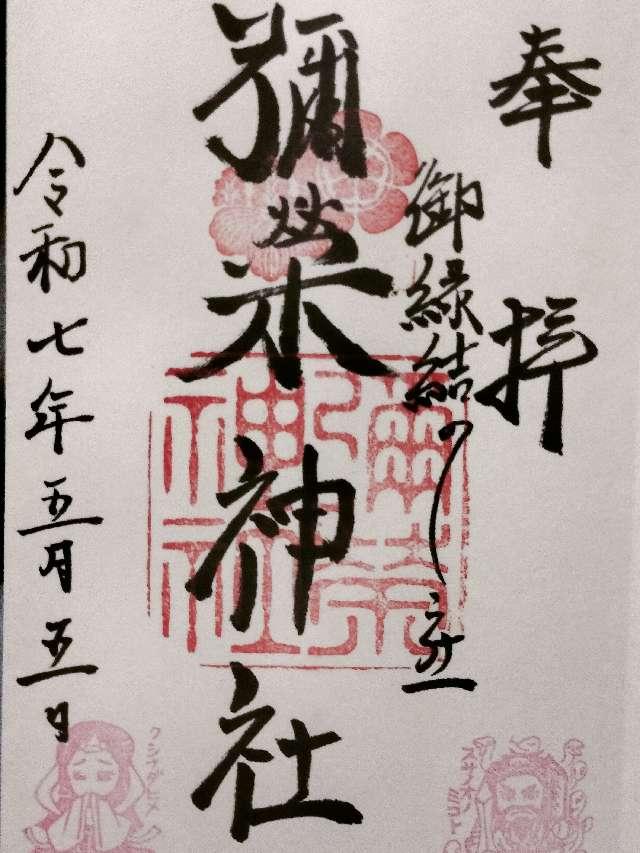 奉拝
御縁結びの社
彌榮神社
令和七年五月五日
彌榮神社
スサノオノミコト
クシナダヒメ